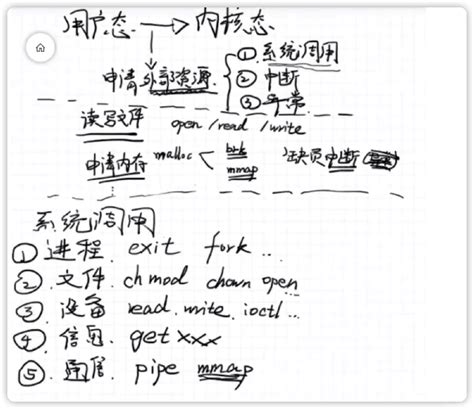 用户态 → 内核态
申请外部资源 { ① 系统调用
② 中断
③ 异常
读写文件 open/read/write
申请内存 malloc < brk
mmap
缺页中断
系统调用
① 进程. exit fork...
② 文件. chmod chown open...
③ 设备 read. write. ioctl...
④ 信息. getxxx
⑤ 通信. pipe mmap